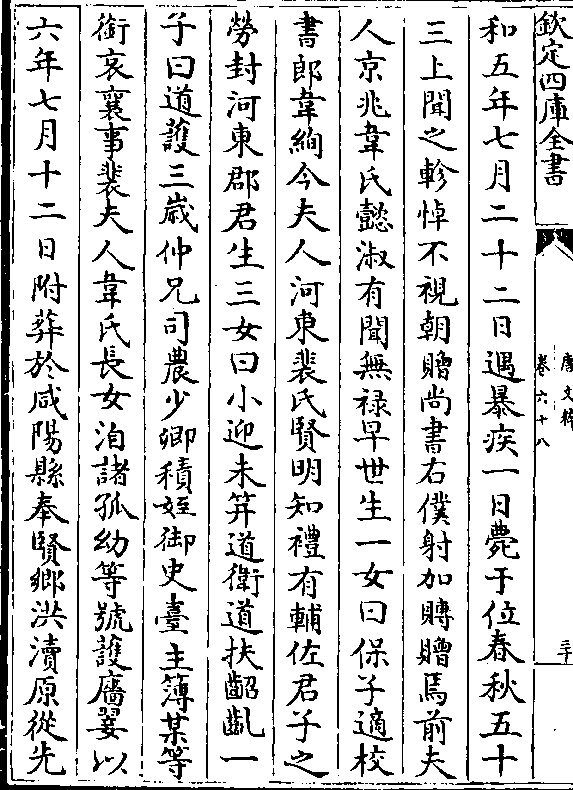 欽定四庫全書
唐文粹
卷六十八
三十
和五年七月二十二日遇暴疾一日薨于位春秋五十
三上聞之軫悼不視朝贈尚書右僕射加賻贈焉前夫
人京兆韋氏懿淑有聞無禄早世生一女曰保子適校
書郎韋絢今夫人河東裴氏賢明知禮有輔佐君子之
勞封河東郡君生三女曰小迎未笄道衛道扶齠齔一
子曰道護三歲仲兄司農少卿積姪御史臺主簿某等
銜哀襄事裴夫人韋氏長女洎諸孤幼等號護廞翣以
六年七月十二日附葬於咸陽縣奉賢鄉洪瀆原從先